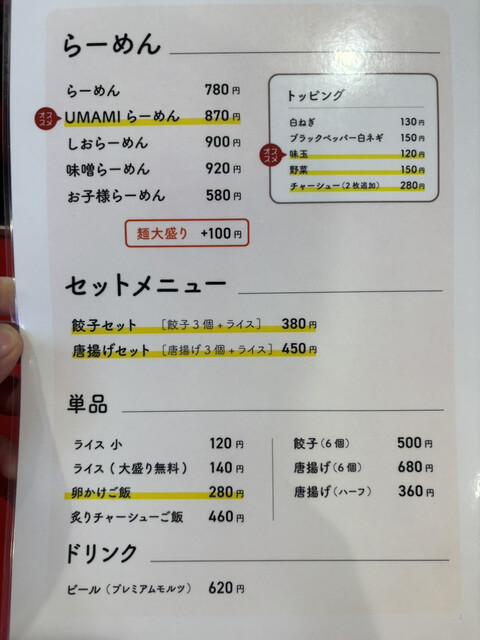 らーめん
らーめん 780円
オススメ UMAMIらーめん 870円
しおらーめん 900円
味噌らーめん 920円
お子様らーめん 580円
麺大盛り +100円
トッピング
白ねぎ 130円
ブラックペッパー白ネギ 150円
オススメ 味玉 120円
野菜 150円
チャーシュー(2枚追加) 280円
セットメニュー
餃子セット [餃子3個+ライス] 380円
唐揚げセット [唐揚げ3個+ライス] 450円
単品
ライス 小 120円
ライス(大盛り無料) 140円
卵かけご飯 280円
炙りチャーシューご飯 460円
餃子(6個) 500円
唐揚げ(6個) 680円
唐揚げ(ハーフ) 360円
ドリンク
ビール(プレミアムモルツ) 620円